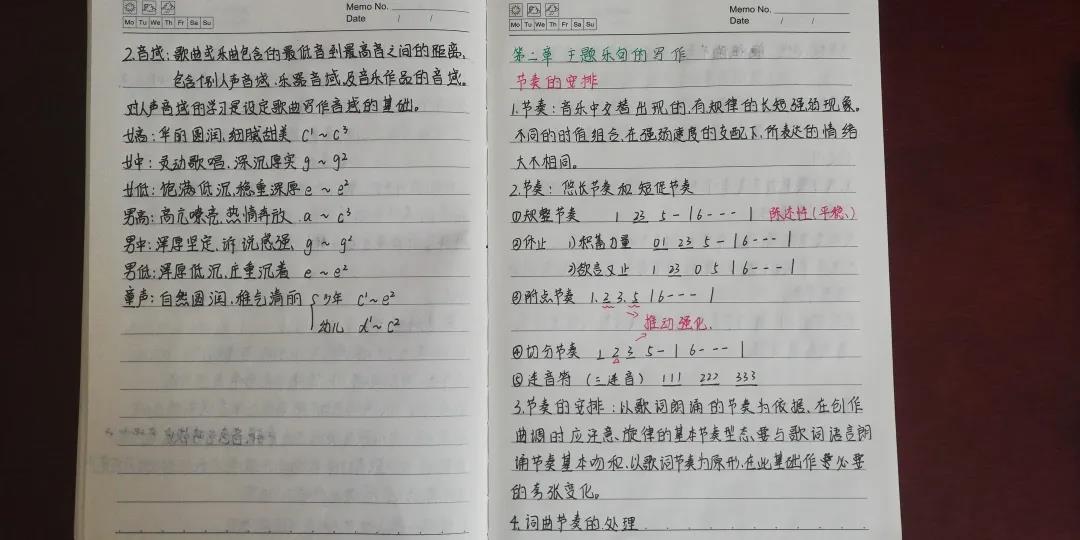 Memo No.
Mo Tu We Th Fr Sa Su
Date / /
2.音域:歌曲或乐曲包含的最低音到最高音之间的距离,
包含个别人声音域、乐器音域,及音乐作品的音域。
对人声音域的学习是设定歌曲写作音域的基础。
女高:华丽圆润,细腻甜美 c¹~c³
女中:灵动歌唱、深沉厚实 g~g²
女低:饱满低沉、稳重深厚 e~e²
男高:高亢嘹亮,热情奔放 a~c³
男中:浑厚坚定,诉说感强、g~g²
男低:浑厚低沉、庄重沉着 e~e²
童声:自然圆润、稚气清丽 { 少年 c¹~e²
幼儿 d¹~c²
Memo No.
Mo Tu We Th Fr Sa Su
Date / /
第二章 主题乐句的写作
节奏的安排
1.节奏:音乐中交替出现的,有规律的长短强弱现象。
不同的时值组合,在强弱速度的支配下,所表达的情绪
大不相同。
2.节奏:悠长节奏和短促节奏
①规整节奏 1 23 5-|6---| 陈述性(平稳、)
②休止 1)积蓄力量 01 23 5-|6---|
2)欲言又止 1 23 0 5|6---|
③附点节奏 1.2 3.5|6---|
推动强化.
④切分节奏 1 2 3 5-|6---|
⑤连音符(三连音) 111 222 333
3.节奏的安排:以歌词朗诵的节奏为依据、在创作
曲调时应注意、旋律的基本节奏型态,要与歌词语言朗
诵节奏基本吻和,以歌词节奏为原形,在此基础作必要
的夸张变化。
4.词曲节奏的处理